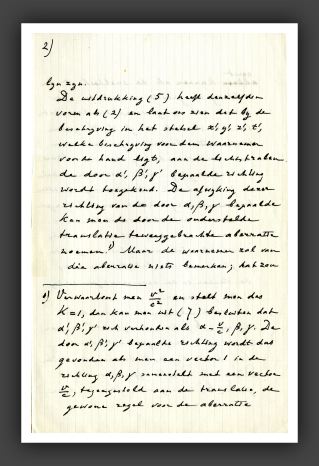 2)
lijn zijn.
De uitdrukking (5) heeft denzelfden
vorm als (2) en laat ons zien dat bij de
beschrijving in het stelsel x', y', z', t',
welke beschrijving voor den waarnemer
voor de hand ligt, aan de lichtstralen
de door α', β', γ' bepaalde richting
wordt toegekend. De afwijking dezer
richting van de door α, β, γ bepaalde
kan men de door de onderstelde
translatie teweeggebrachte aberratie
noemen. Maar de waarnemer zal van
die aberratie niets bemerken; het zou
Verwaarloost men v²/c² en stelt men dus
K=1, dan kan men uit (7) besluiten dat
α', β', γ' zich verhouden als α - v/c, β, γ. De
door α', β', γ' bepaalde richting wordt dus
gevonden als men een vector 1 in de
richting α, β, γ samenstelt met een vector
v/c, tegengesteld aan de translatie, de
gewone regel voor de aberratie